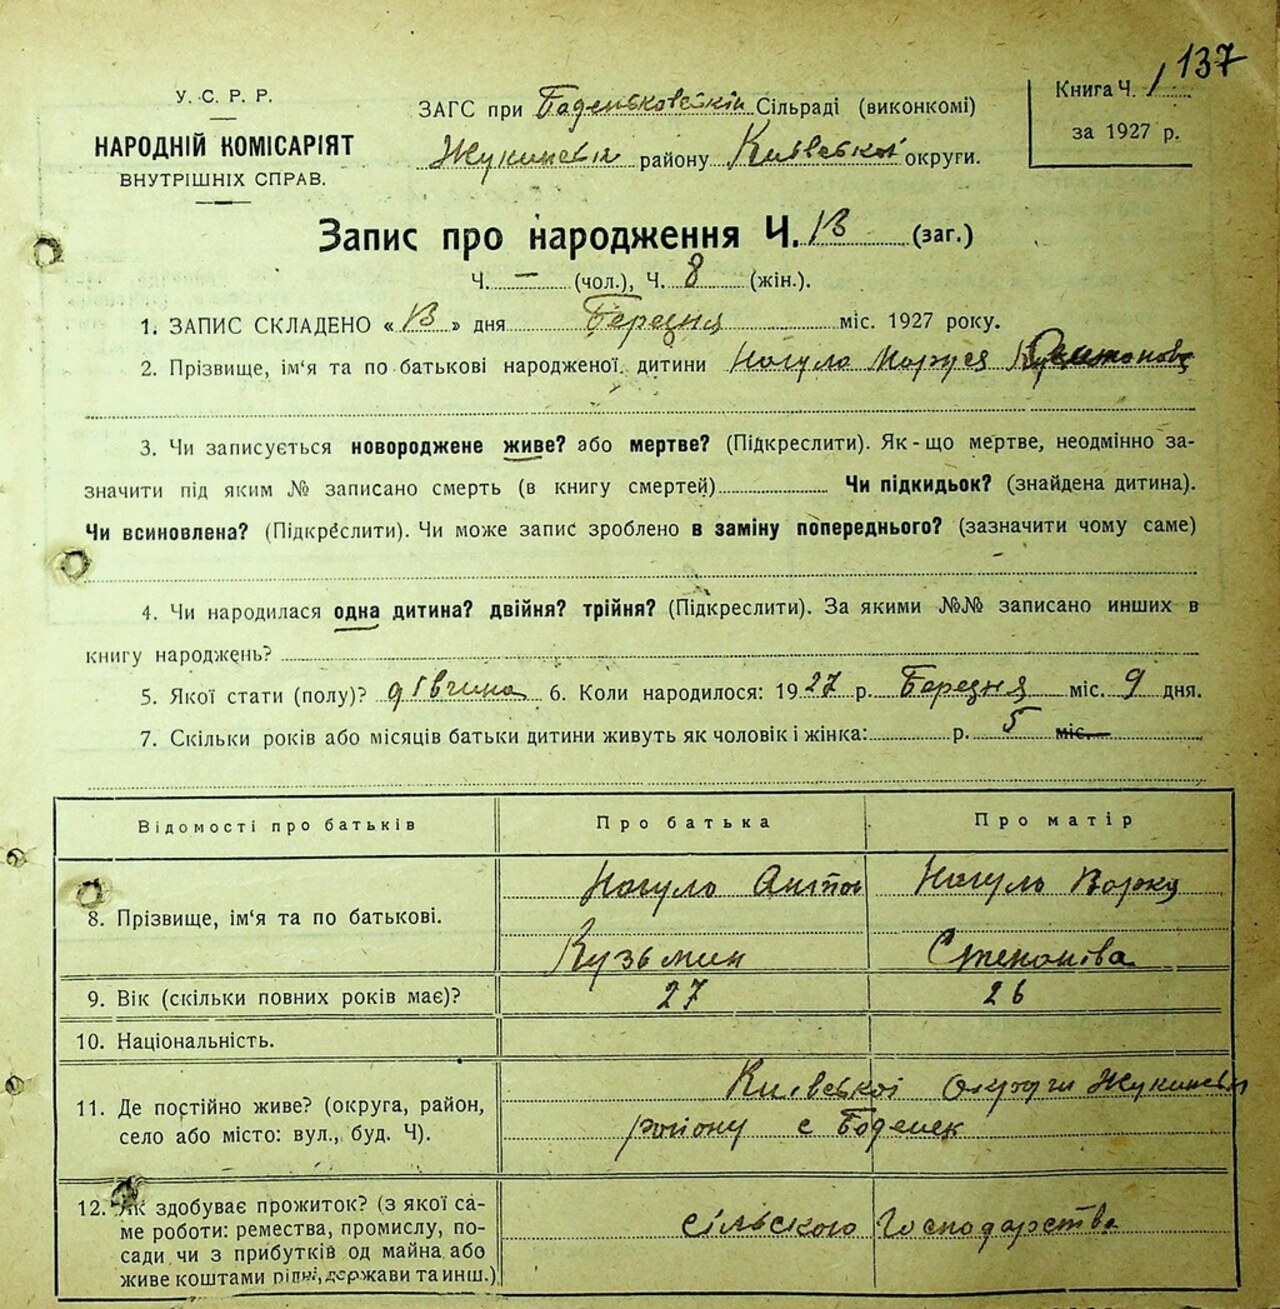 137
У. С. Р. Р.
НАРОДНІЙ КОМІСАРІЯТ
ВНУТРІШНІХ СПРАВ.
ЗАГС при Боденьковській Сільраді (виконкомі)
Жукинськ району Київської округи.
Книга Ч. 1
за 1927 р.
Запис про народження Ч. 13 (заг.)
Ч. — (чол.), Ч. 8 (жін.).
1. ЗАПИС СКЛАДЕНО « 13 » дня Березня міс. 1927 року.
2. Прізвище, ім‘я та по батькові народженої дитини Ногуло Маруся Антонова
3. Чи записується новороджене живе? або мертве? (Підкреслити). Як-що мертве, неодмінно за-
значити під яким № записано смерть (в книгу смертей) Чи підкидьок? (знайдена дитина).
Чи всиновлена? (Підкреслити). Чи може запис зроблено в заміну попереднього? (зазначити чому саме)
4. Чи народилася одна дитина? двійня? трійня? (Підкреслити). За якими №№ записано инших в
книгу народжень?
5. Якої стати (полу)? дівчина 6. Коли народилося: 1927 р. Березня міс. 9 дня.
7. Скільки років або місяців батьки дитини живуть як чоловік і жінка: р. 5 міс.
Відомості про батьків Про батька Про матір
Ногуло Антон Ногуло Ворка
8. Прізвище, ім‘я та по батькові.
Кузьмин Степанова
9. Вік (скільки повних років має)? 27 26
10. Національність.
Київської Округи Жукинськ
11. Де постійно живе? (округа, район,
село або місто: вул., буд. Ч).
району с Боденек
12. Як здобуває прожиток? (з якої са-
ме роботи: ремества, промислу, по-
сади чи з прибутків од майна або
живе коштами рідні, держави та инш.)
сільского Господарства